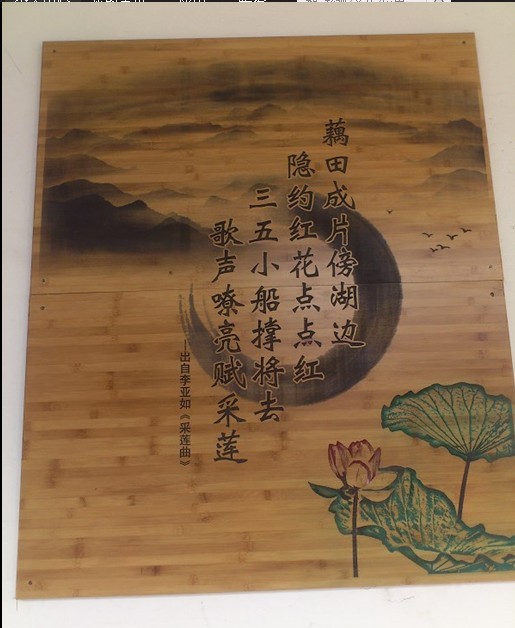 藕田成片傍湖边
隐约红花点点红
三五小船撑将去
歌声嘹亮赋采莲
——出自李亚如《采莲曲》